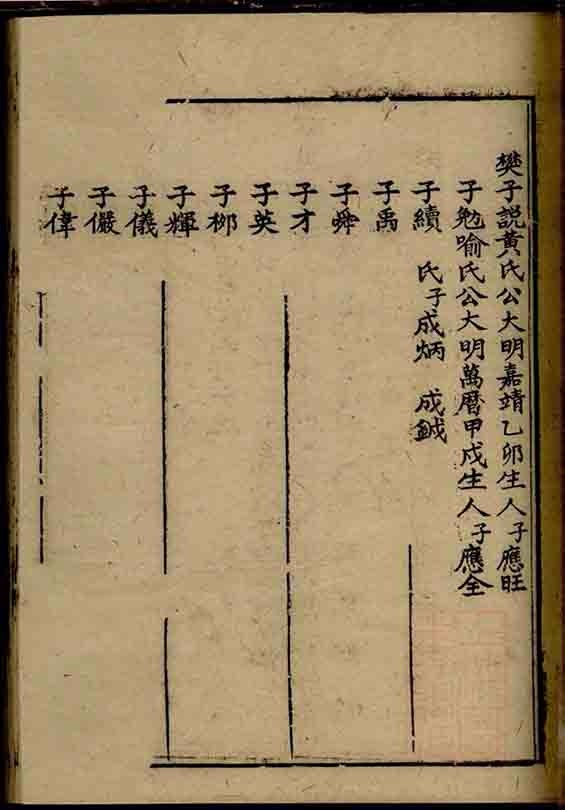 樊子説黃氏公大明嘉靖乙卯生人子應旺
子勉喻氏公大明萬曆甲戌生人子應全
子續　氏子成炳　成鉞
子禹
子舜
子才
子英
子柳
子輝
子儀
子儼
子偉